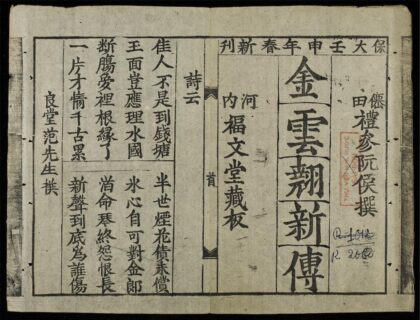 保大壬申年春新刊
僊田禮參阮侯撰
金雲翹新傳
河內福文堂藏板
首
詩云
佳人不是到錢塘
半世煙花債未償
玉面豈應埋水國
氷心自可對金郎
斷膓夢裡根緣了
薄命琴終怨恨長
一片才情千古累
新聲到底為誰傷
良堂范先生撰